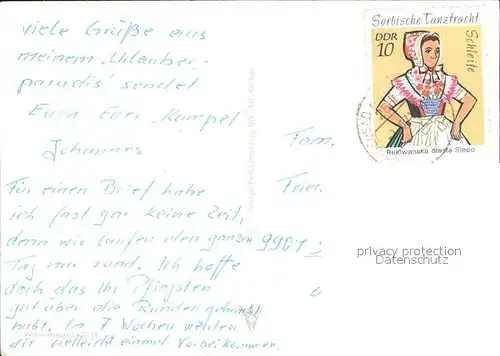 viele Grüße aus
meinem „Urlauber-
paradis" sendet
Euer Kumpel
Johannes
Für einen Brief habe
ich fast gar keine Zeit,
denn wir laufen den ganzen
Tag nur rund. Ich hoffe
doch daß ihr Pfingsten
gut über die Runden gebracht
habt. In 7 Wochen werden
wir vielleicht einmal vorbeikommen.
Sorbische Tanztracht
Schleife
DDR
10
Rejowanska drasta Slepo
Fam.
Frie
9901
privacy protection
Datenschutz